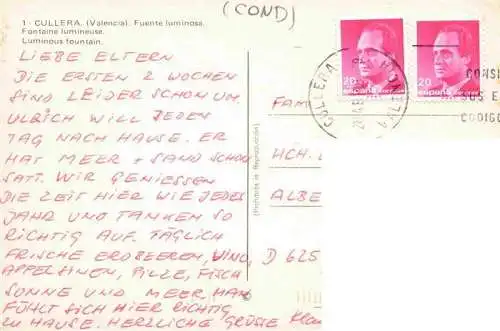 (COND)
1 - CULLERA. (Valencia). Fuente luminosa.
Fontaine lumineuse.
Luminous fountain.
LIEBE ELTERN
DIE ERSTEN 2 WOCHEN
SIND LEIDER SCHON UM.
ULRICH WILL JEDEN
TAG NACH HAUSE. ER
HAT MEER + SAND SCHON
SATT. WIR GENIESSEN
DIE ZEIT HIER WIE JEDES
JAHR UND TANKEN SO
RICHTIG AUF. TÄGLICH
FRISCHE ERDBEEREN, VINO,
APPELSINEN, PILZE, FISCH
SONNE UND MEER. MAN
FÜHLT SICH HIER RICHTIG
ZU HAUSE. HERZLICHE GRÜSSE
(Prohibida la Reproducción)
20
españa
20
españa
CULLERA
CONSI
SUS E
CODIGO
FAM
HCH. L
ALBE
D 625